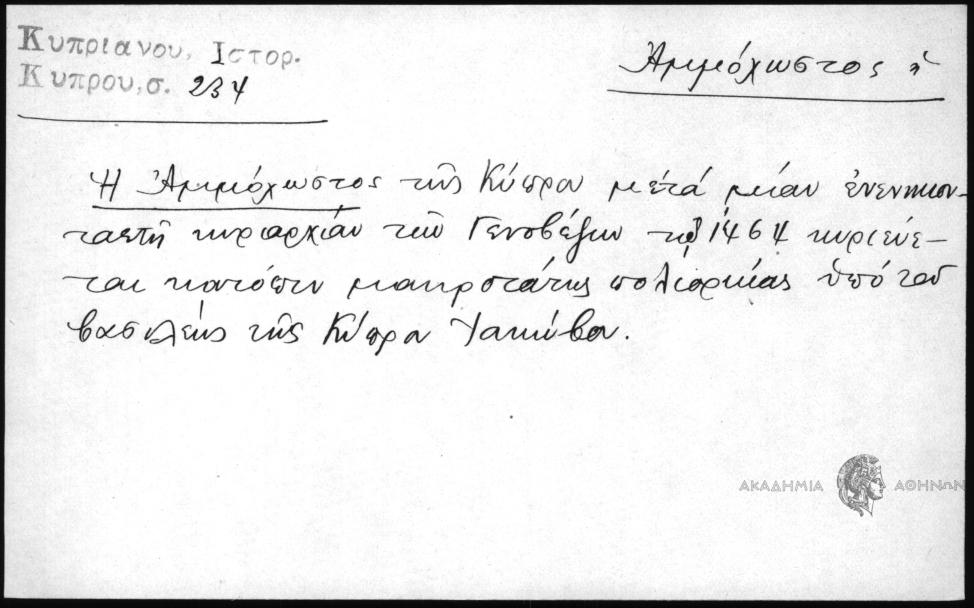 Κυπριανου, Ιστορ.
Κυπρου, σ. 234
Ἀμμόχωστος ἡ
Ἡ Ἀμμόχωστος τῆς Κύπρου μετά μίαν ἐνενηκον-
ταετῆ κυριαρχίαν τῶν Γενοβέζων τῷ 1464 κυριεύε-
ται κατόπιν μακροτάτης πολιορκίας ὑπό τοῦ
βασιλέως τῆς Κύπρου Ἰακώβου.
ΑΚΑΔΗΜΙΑ ΑΘΗΝΩΝ